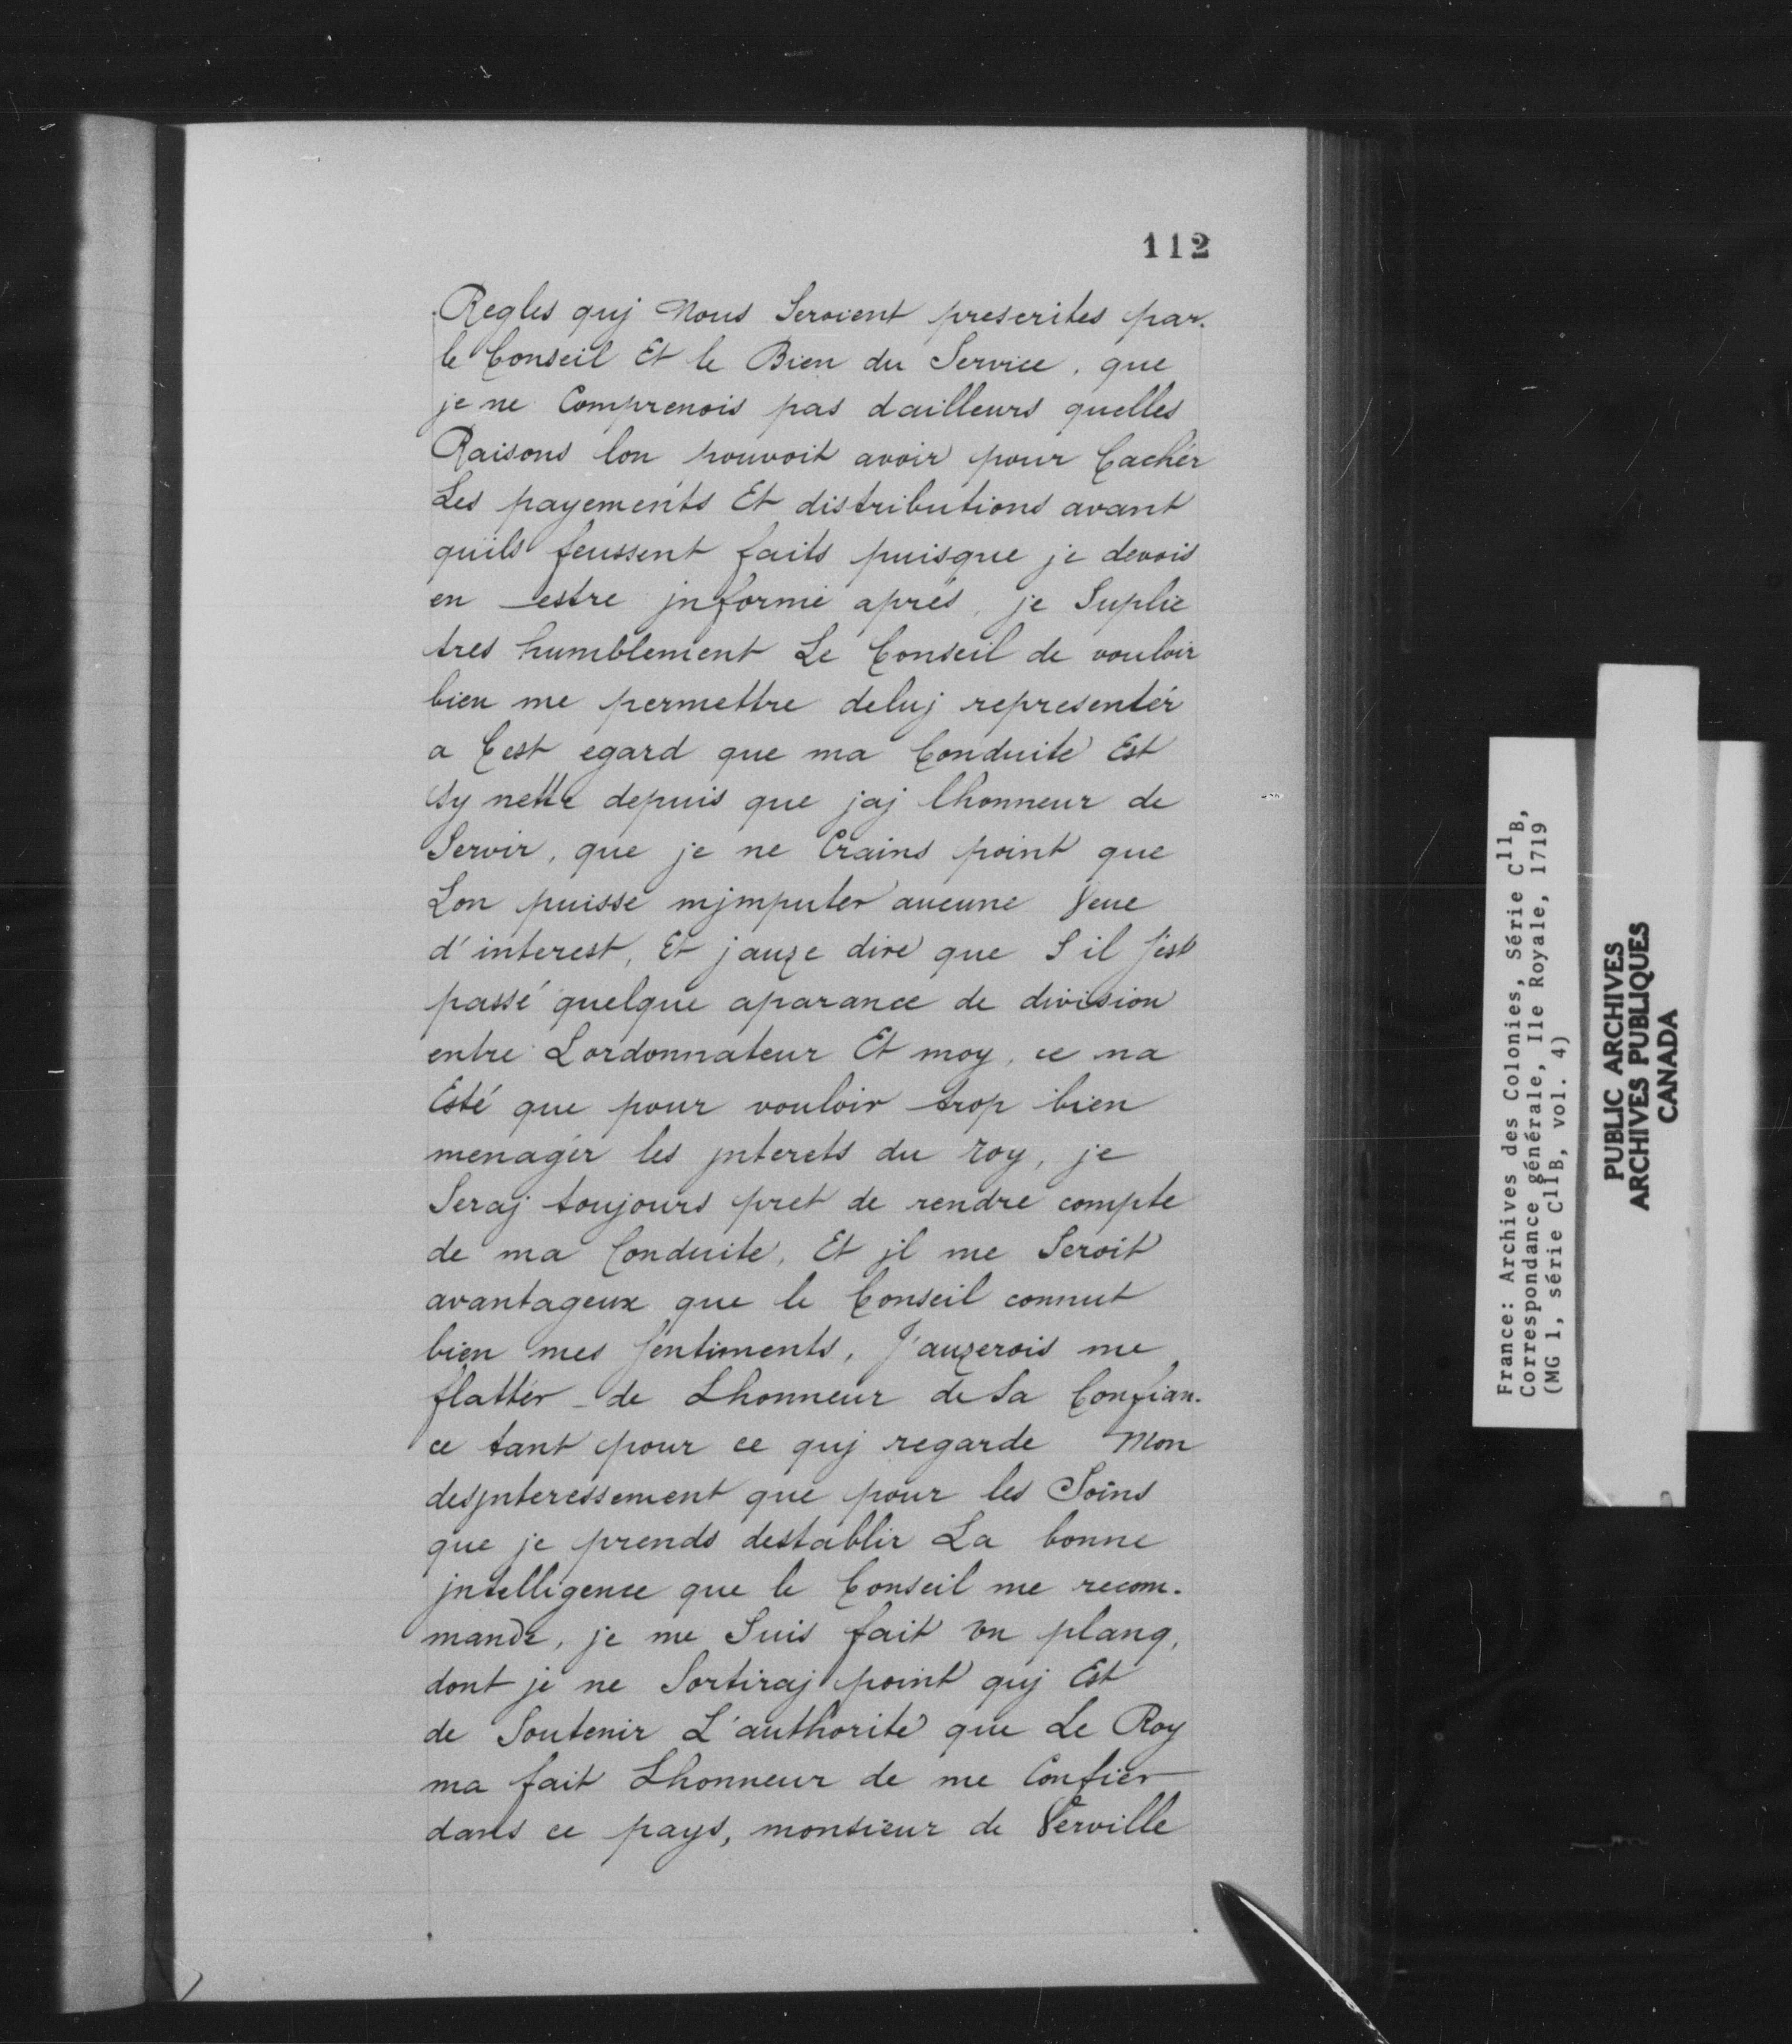 112
Regles quj Nous Seroient prescrites par.
le Conseil Et le Bien du Service, que
je ne Comprenois pas dailleurs quelles
Raisons lon pouvoit avoir pour Cachér
Les payements Et distributions avant
quils feussent faits puisque je devois
en estre jnformé aprés, je Suplie
tres humblement Le Conseil de vouloir
bien me permettre deluj representér
a Cest egard que ma Conduite Est
Sy nette depuis que jaj lhonneur de
Servir, que je ne Crains point que
Lon puisse mjmputer aucune Veue
d'interest, Et jauze dire que S il s'est
passé quelque aparance de division
entre Lordonnateur Et moy, ce na
Esté que pour vouloir trop bien
menagér les jnterets du roy, je
Seraj toujours pret de rendre compte
de ma Conduite, Et jl me Seroit
avantageux que le Conseil connut
bien mes Sentiments, J'auzerois me
flattér de Lhonneur de Sa Confian-
ce tant pour ce quj regarde Mon
desjnteressement que pour les Soins
que je prends destablir La bonne
jntelligence que le Conseil me recom-
mande, je me Suis fait vn plang,
dont je ne Sortiraj point quj Est
de Soutenir L'authorité que Le Roy
ma fait Lhonneur de me Confier
dans ce pays, monsieur de Verville
France: Archives des Colonies, Série C11B,
Correspondance générale, Ile Royale, 1719
(MG 1, série C11B, vol. 4)
PUBLIC ARCHIVES
ARCHIVES PUBLIQUES
CANADA